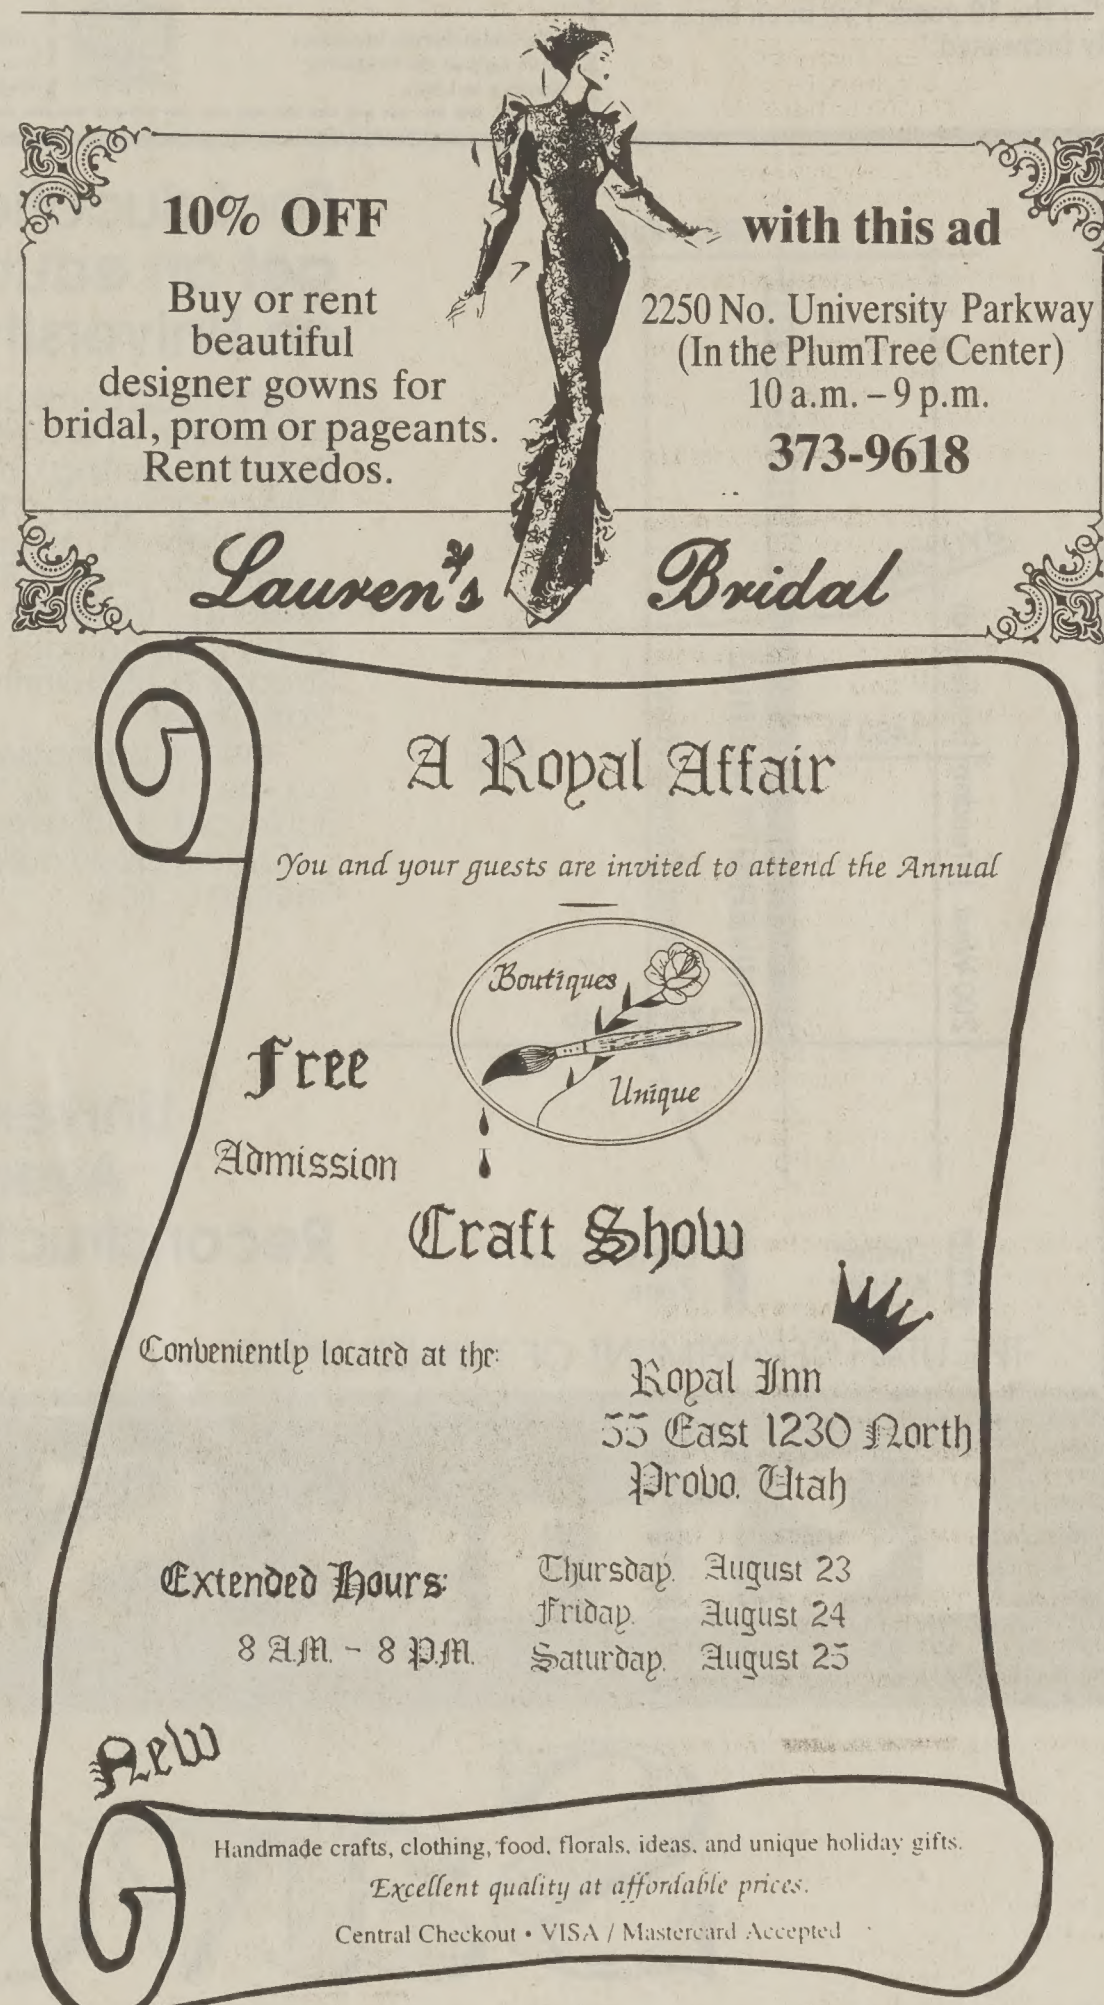 10% OFF
Buy or rent
beautiful
designer gowns for
bridal, prom or pageants.
Rent tuxedos.
with this ad
2250 No. University Parkway
(In the PlumTree Center)
10 a.m. – 9 p.m.
373-9618
Lauren's Bridal
A Royal Affair
You and your guests are invited to attend the Annual
Boutiques
Unique
Free
Admission
Craft Show
Conveniently located at the:
Royal Inn
55 East 1230 North
Provo, Utah
Extended Hours:
8 A.M. – 8 P.M.
Thursday, August 23
Friday, August 24
Saturday, August 25
New
Handmade crafts, clothing, food, florals, ideas, and unique holiday gifts.
Excellent quality at affordable prices.
Central Checkout • VISA / Mastercard Accepted